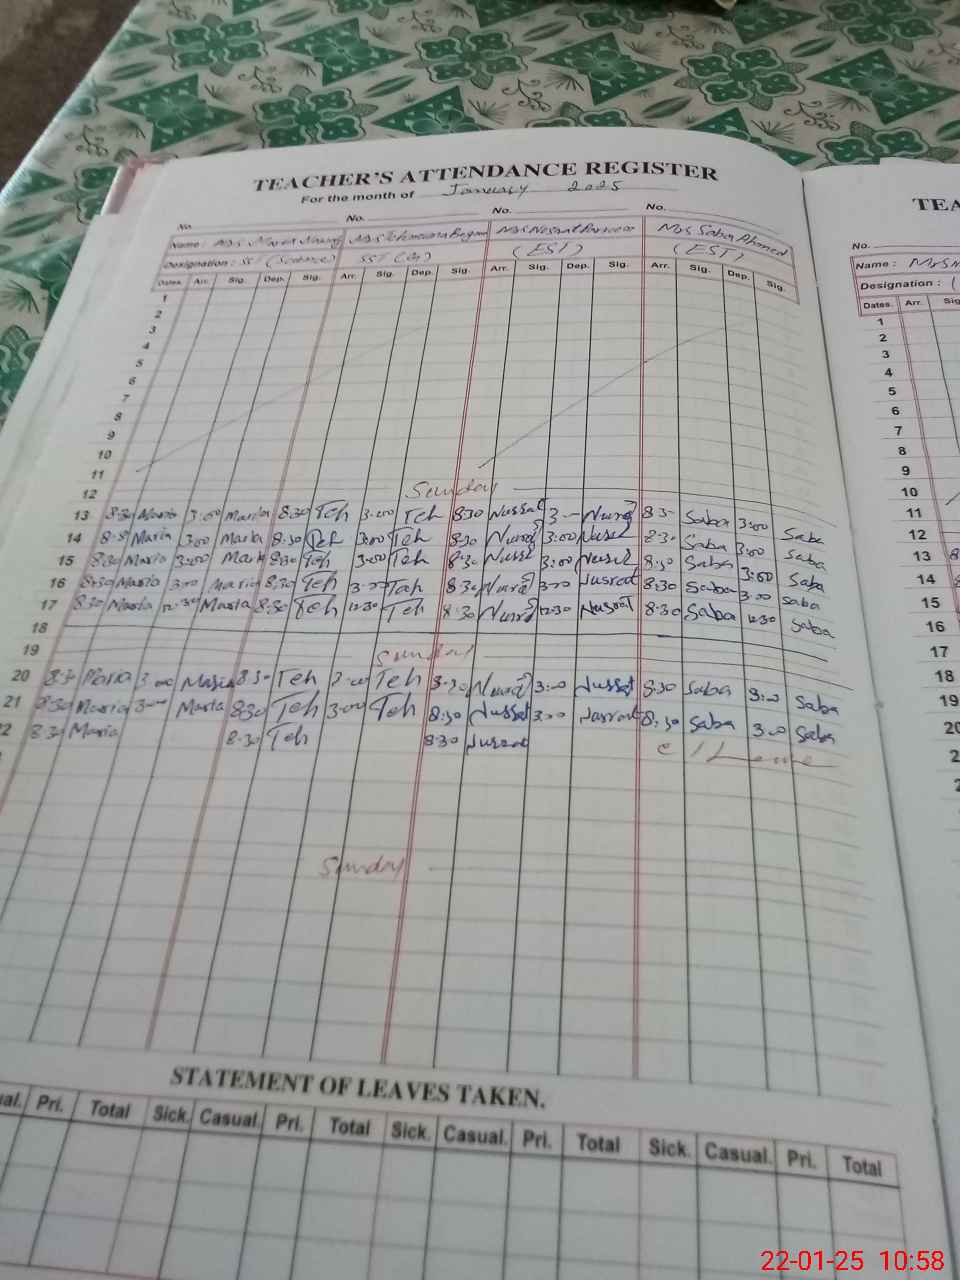 TEACHER'S ATTENDANCE REGISTER
For the month of January 2025
No. No. No. No.
Name : Mrs Maria Mrs Begum Mrs Nusrat Parveen Mrs Saba Ahmed
Designation : SST (Science) SST (G) (EST) (EST)
Dates. Arr. Sig. Dep. Sig. Arr. Sig. Dep. Sig. Arr. Sig. Dep. Sig. Arr. Sig. Dep. Sig.
1
2
3
4
5
6
7
8
9
10
11
12 Sunday
13 8:30 Maria 3:00 Maria 8:30 Teh 3:00 Teh 8:30 Nusrat 3- 8:3- Saba 3:00 Saba
14 Maria 3:00 Maria 8:30 Teh 3:00 Teh 8:30 3:00 8:30 Saba 3:00 Saba
15 8:30 Maria 3:00 Maria 8:30 Teh 3:00 Teh 8:30 3:00 8:30 Saba 3:00 Saba
16 8:30 Maria 3:00 Maria 8:30 Teh 3:00 Teh 8:30 3:00 Nusrat 8:30 Saba 3:00 Saba
17 8:30 Maria 12:30 Maria 8:30 Teh 12:30 Teh 8:30 12:30 Nusrat 8:30 Saba 12:30 Saba
18
19 Sunday
20 8:30 Maria 3:00 Maria 8:30 Teh 3:00 Teh 8:30 3:00 Nusrat 8:30 Saba 3:00 Saba
21 8:30 Maria 3:00 Maria 8:30 Teh 3:00 Teh 8:30 Nusrat 3:00 Nusrat 8:30 Saba 3:00 Saba
22 8:30 Maria 8:30 Teh 8:30 Nusrat C/Leave
Sunday
STATEMENT OF LEAVES TAKEN.
ual. Pri. Total Sick. Casual. Pri. Total Sick. Casual. Pri. Total Sick. Casual. Pri. Total
TEA
No.
Name : Mrs
Designation : (
Dates. Arr. Sig
1
2
3
4
5
6
7
8
9
10
11
12
13 8
14
15
16
17
18
19
20
2
2
22-01-25 10:58